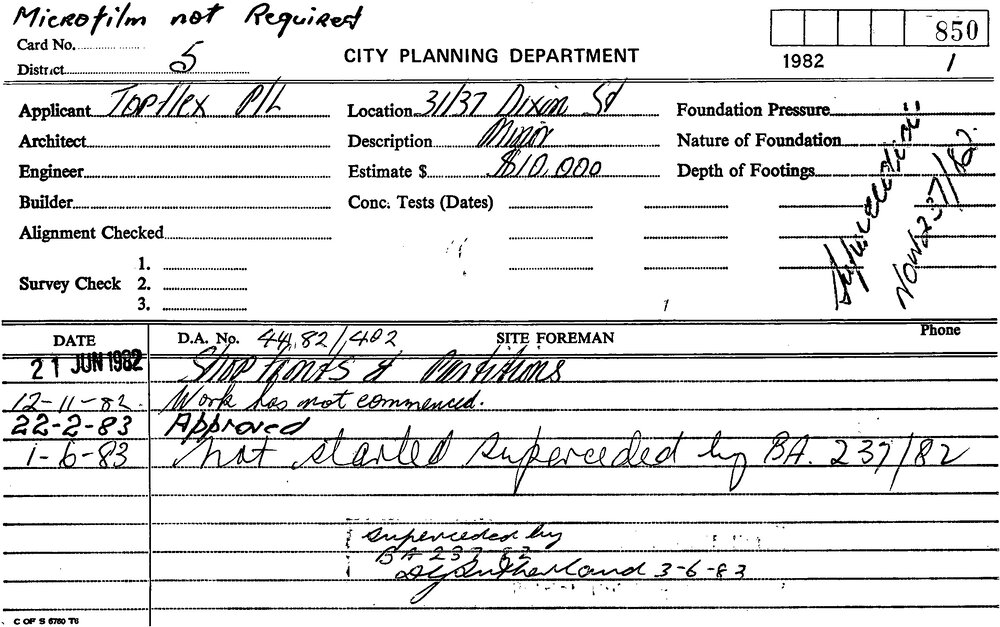 Microfilm not Required
Card No.
850
District 5
CITY PLANNING DEPARTMENT
1982 1
Applicant Topflex P/L Location 31/37 Dixon St Foundation Pressure
Architect Description Minor Nature of Foundation
Engineer Estimate $ $10,000 Depth of Footings
Builder Conc. Tests (Dates)
Alignment Checked
Now 237/82.
1.
Survey Check 2.
3.
DATE D.A. No. 44.82/.402 SITE FOREMAN Phone
21 JUN 1982 Shop fronts & Partitions
12-11-82. Work has not commenced.
22-2-83 Approved
1-6-83 not started superceded by BA. 237/82
superceded by
BA 237 82
Sutherland 3-6-83
C OF S 6780 T6